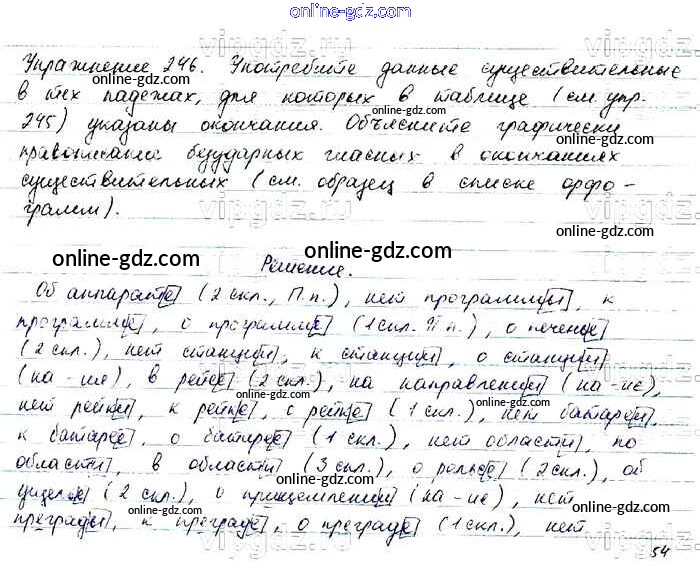 online-gdz.com
online-gdz.com
Упражнение 246. Употребите данные существительные
в тех падежах, для которых в таблице (см. упр.
245) указаны окончания. Объясните графически
правописание безударных гласных в окончаниях
существительных (см. образец в списке орфо-
грамм).
online-gdz.com
online-gdz.com
Решение.
Об аппарате (2 скл., П.п.), нет программы, к
программе, о программе (1 скл. П.п.), о печенье
(2 скл.), нет станции, к станции, о станции
(на -ия), в рейсе (2 скл.), на направлении (на -ие),
нет рейки, к рейке, о рейке (1 скл.), нет батареи,
к батарее, о батарее (1 скл.), нет области, по
области, в области (3 скл.), о рельсе (2 скл.), об
ущелье (2 скл.), о прищемлении (на -ие), нет
преграды, к преграде, о преграде (1 скл.), нет
54